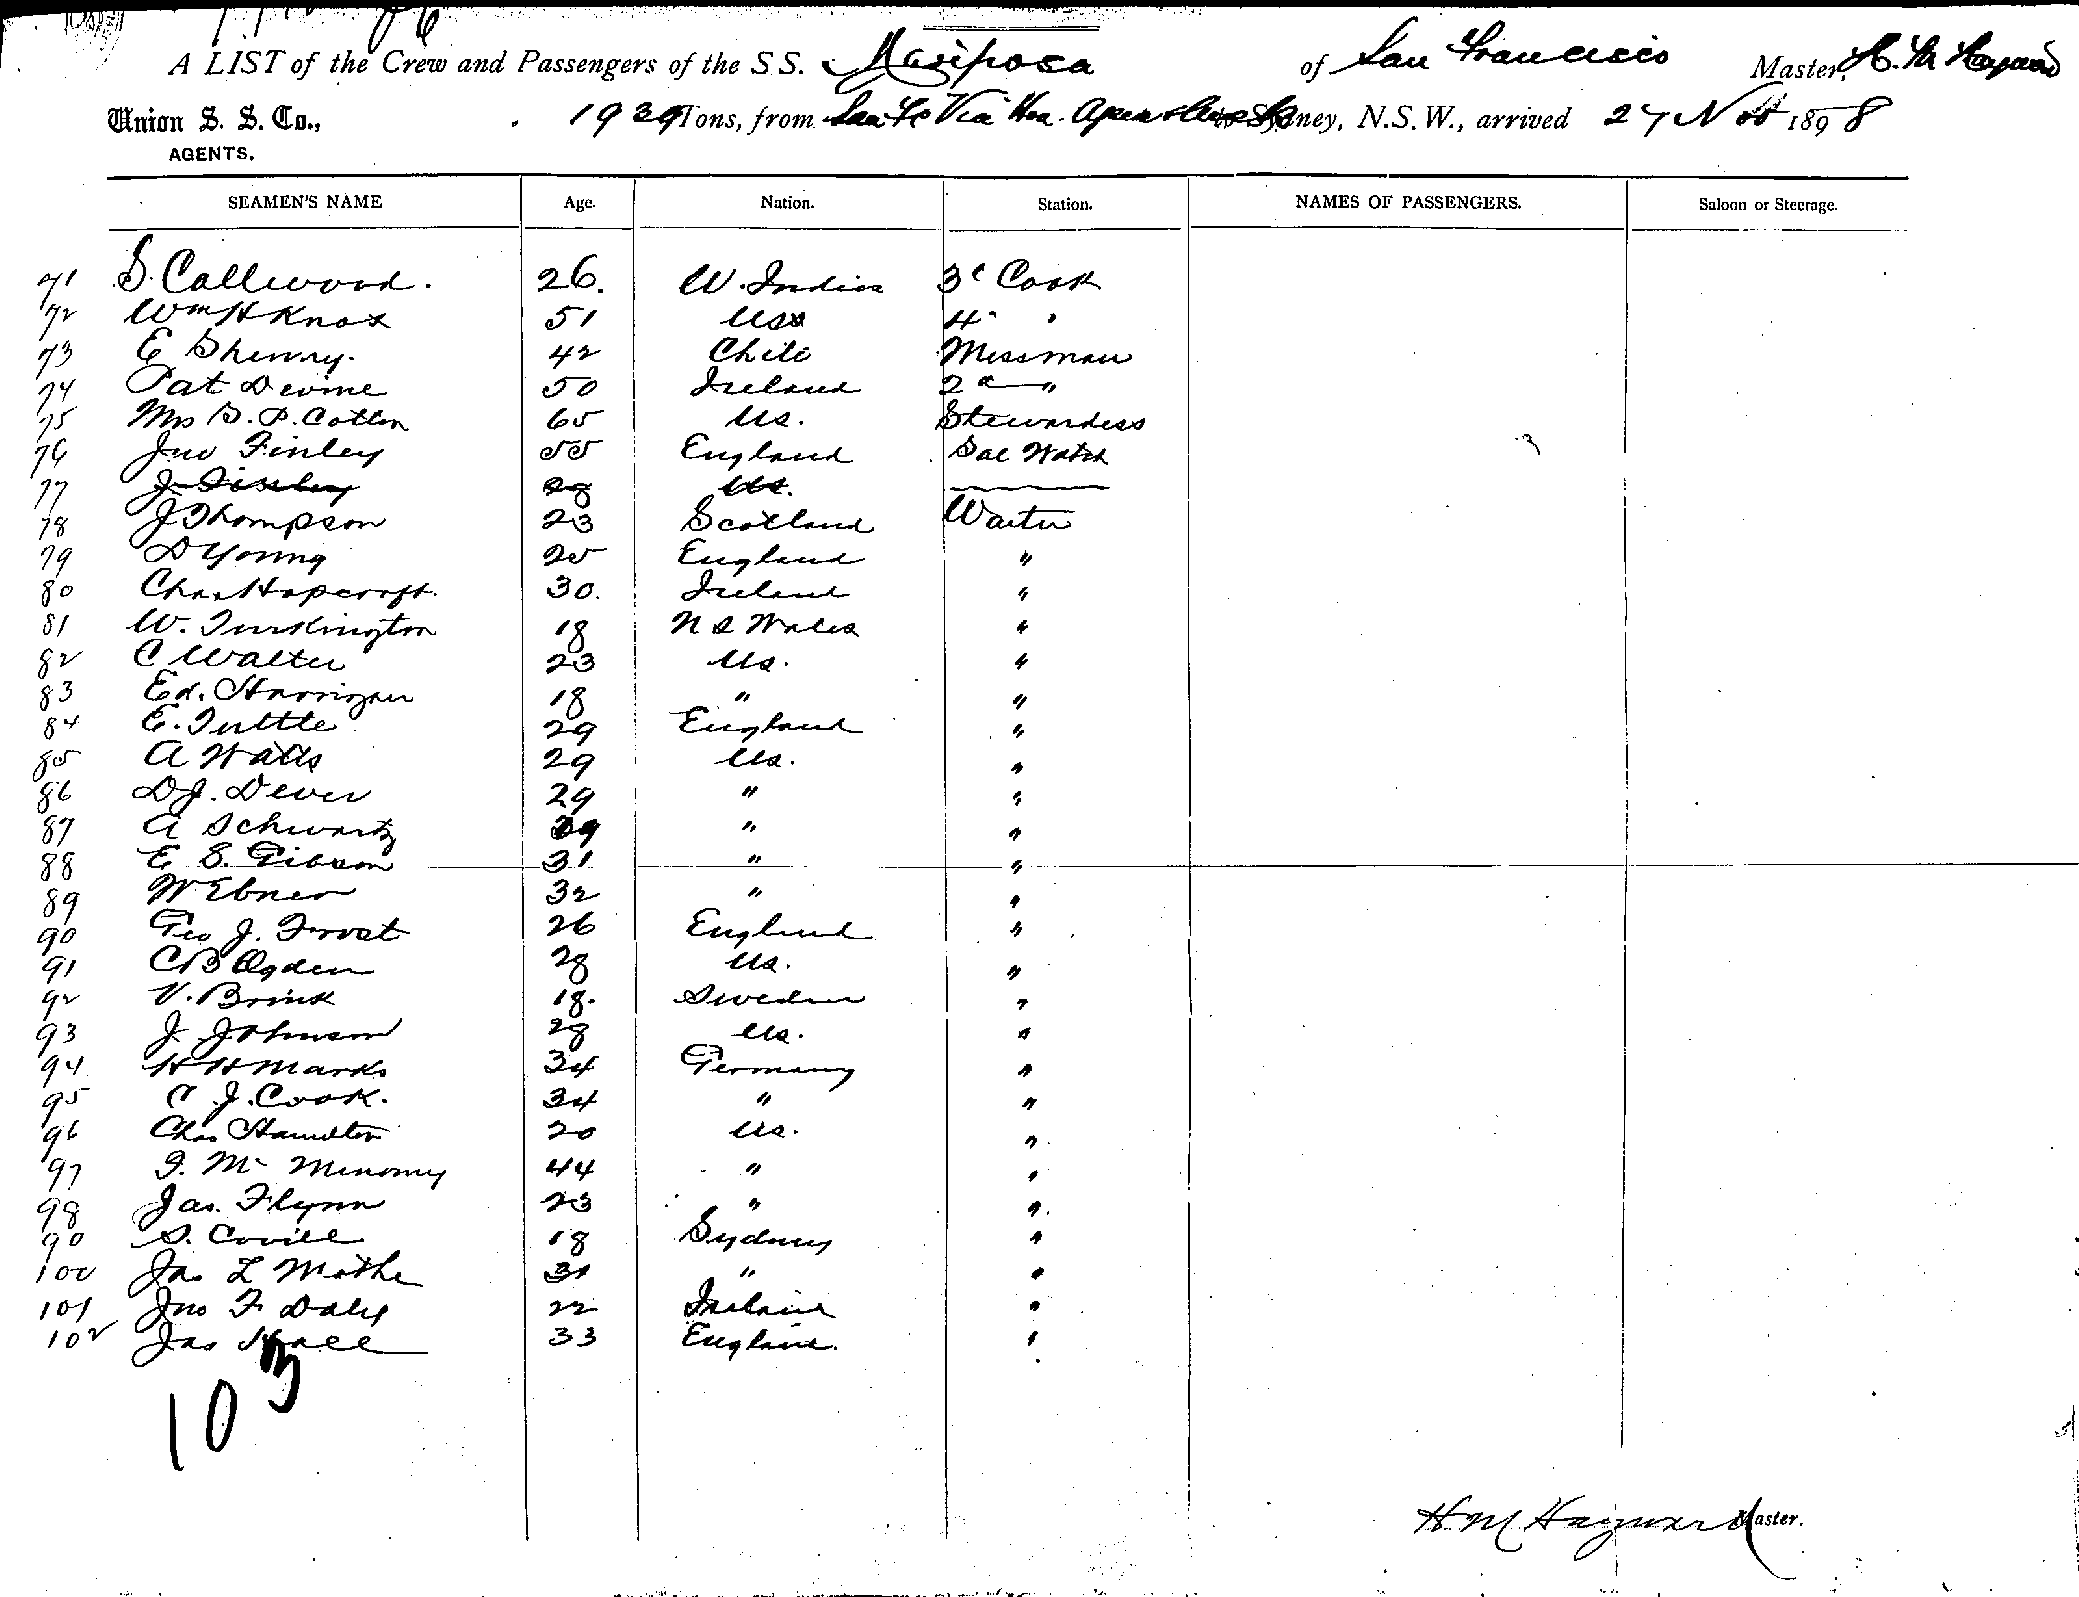 A LIST of the Crew and Passengers of the S.S. Mariposa of San Francisco Master, H. M. Hayward
Union S. S. Co., 1939 Tons, from San Fco Via Hon. Apia Sydney, N.S.W., arrived 27 Nov 1898
AGENTS.
SEAMEN'S NAME Age. Nation. Station. NAMES OF PASSENGERS. Saloon or Steerage.
71 S. Callwood. 26. W. Indies 3d Cook
72 Wm H Knox 51 US 4 "
73 E Shenry. 42 Chile Messman
74 Pat Devine 50 Ireland 2d "
75 Mrs B. P. Cotten 65 US. Stewardess
76 Jno Finley 55 England Sal Watch
77 J. Finley 28 US.
78 J Thompson 23 Scotland Waiter
79 D Young 25 England "
80 Chas Hopcroft. 30. Ireland "
81 W. Turkington 18 N S Wales "
82 C Walter 23 US. "
83 Ed. Harrigan 18 " "
84 E. Tuttle 29 England "
85 A Watts 29 US. "
86 D J. Dever 29 " "
87 A Schwartz 29 " "
88 E S. Gibson 31 " "
89 W Ebner 32 " "
90 Geo J. Frost 26 England "
91 C B Ogden 28 US. "
92 V. Brink 18. Sweden "
93 J. Johnson 28 US. "
94 H H Marks 34 Germany "
95 C J. Cook. 34 " "
96 Chas Hamilton 20 US. "
97 J. Mc Menomy 44 " "
98 Jas. Flynn 23 " "
90 S. Covill 18 Sydney "
100 Jas L Mothe 31 " "
101 Jno F Daly 22 Ireland "
102 Jas Hall 33 England. "
103
H M Hayward Master.